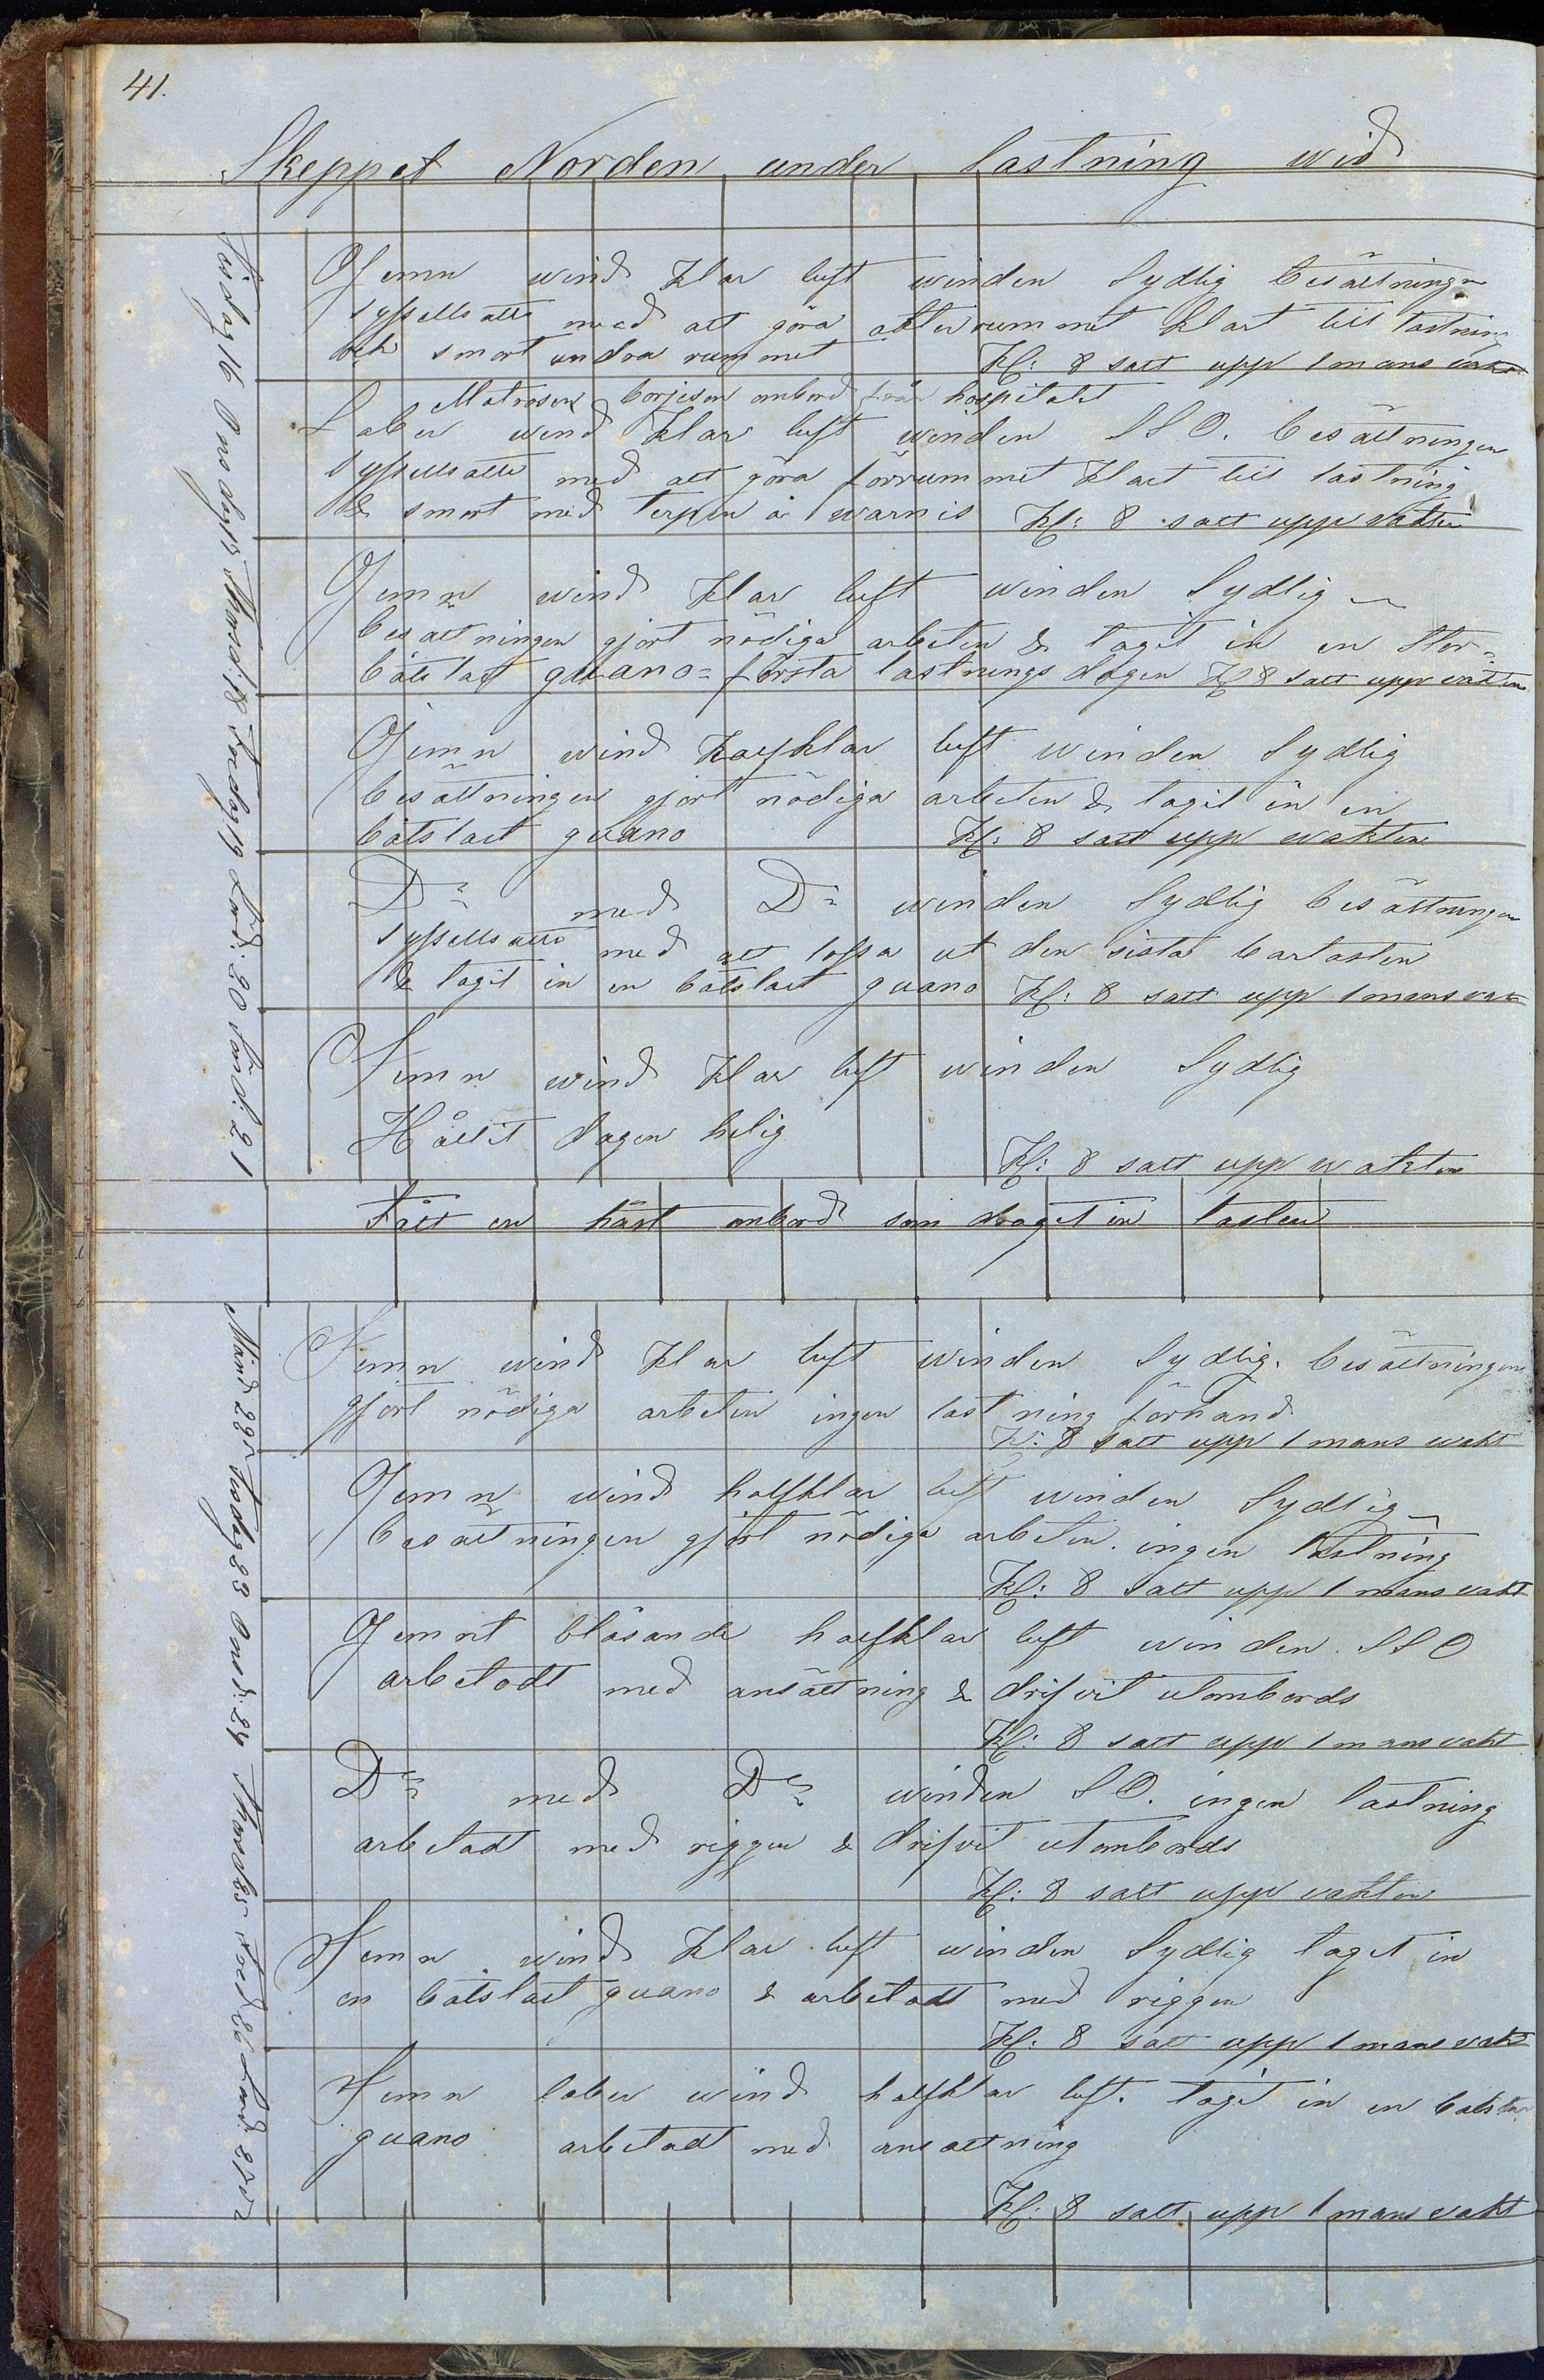 41.
Skeppet Norden under lastning wid
Tisdag 16 Onsdag 17 Thorsd: 18 Fredag 19 Lörd: 20 Sönd: 21
Jemn wind klar luft winden Sydlig besättningen
sysselsatts med att göra akterrummet klart till lastning
och smort undra rummet Kl: 8 satt upp 1 mans vakt
Matrosen ombord från hospitalet
Laber wind klar luft winden SSO. besättningen
sysselsatts med att göra förrummet klart till lastning
& smort med å warnis Kl: 8 satt upp vakten
Jemn wind klar luft winden Sydlig
besättningen gjort nödiga arbeten & tagit in en Stor=
båtslast guano = första lastnings dagen Kl 8 satt upp vakten
Jemn wind halfklar luft winden Sydlig
besättningen gjort nödiga arbeten & tagit in en
båtslast guano Kl: 8 satt upp wakten
Do med Do winden Sydlig besättningen
sysselsatts med att lossa ut den sista barlasten
& tagit in en båtslast guano Kl: 8 satt upp 1 mans vakt
Jemn wind klar luft winden Sydlig
Hållit dagen helig
Kl: 8 satt upp wakten
Fått en häst ombord som draget in lasten
Månd 22 Tisdag 23 Onsd: 24 Thorsd 25 Fred 26 Lörd: 27
Jemn wind klar luft winden Sydlig. besättningen
gjort nödiga arbeten ingen lastning förhand
Kl: 8 satt upp 1 mans wakt
Jemn wind halfklar luft winden Sydlig
besättningen gjort nödiga arbeten. ingen lastning
Kl: 8 satt upp 1 mans vakt
Jemnt blåsande halfklar luft winden SSO
arbetadt med ansättning & drifvit utombords
Kl: 8 satt upp 1 mans vakt
Do med Do winden SO. ingen lastning
arbetadt med riggen & drifvit utombords
Kl: 8 satt upp vakten
Jemn wind klar luft winden Sydlig taget in
en båtslast guano & arbetadt med riggen
Kl: 8 satt upp 1 mans vakt
Jemn laber wind halfklar luft. tagit in en båtslast
guano arbetadt med ansättning
Kl: 8 satt upp 1 mans vakt